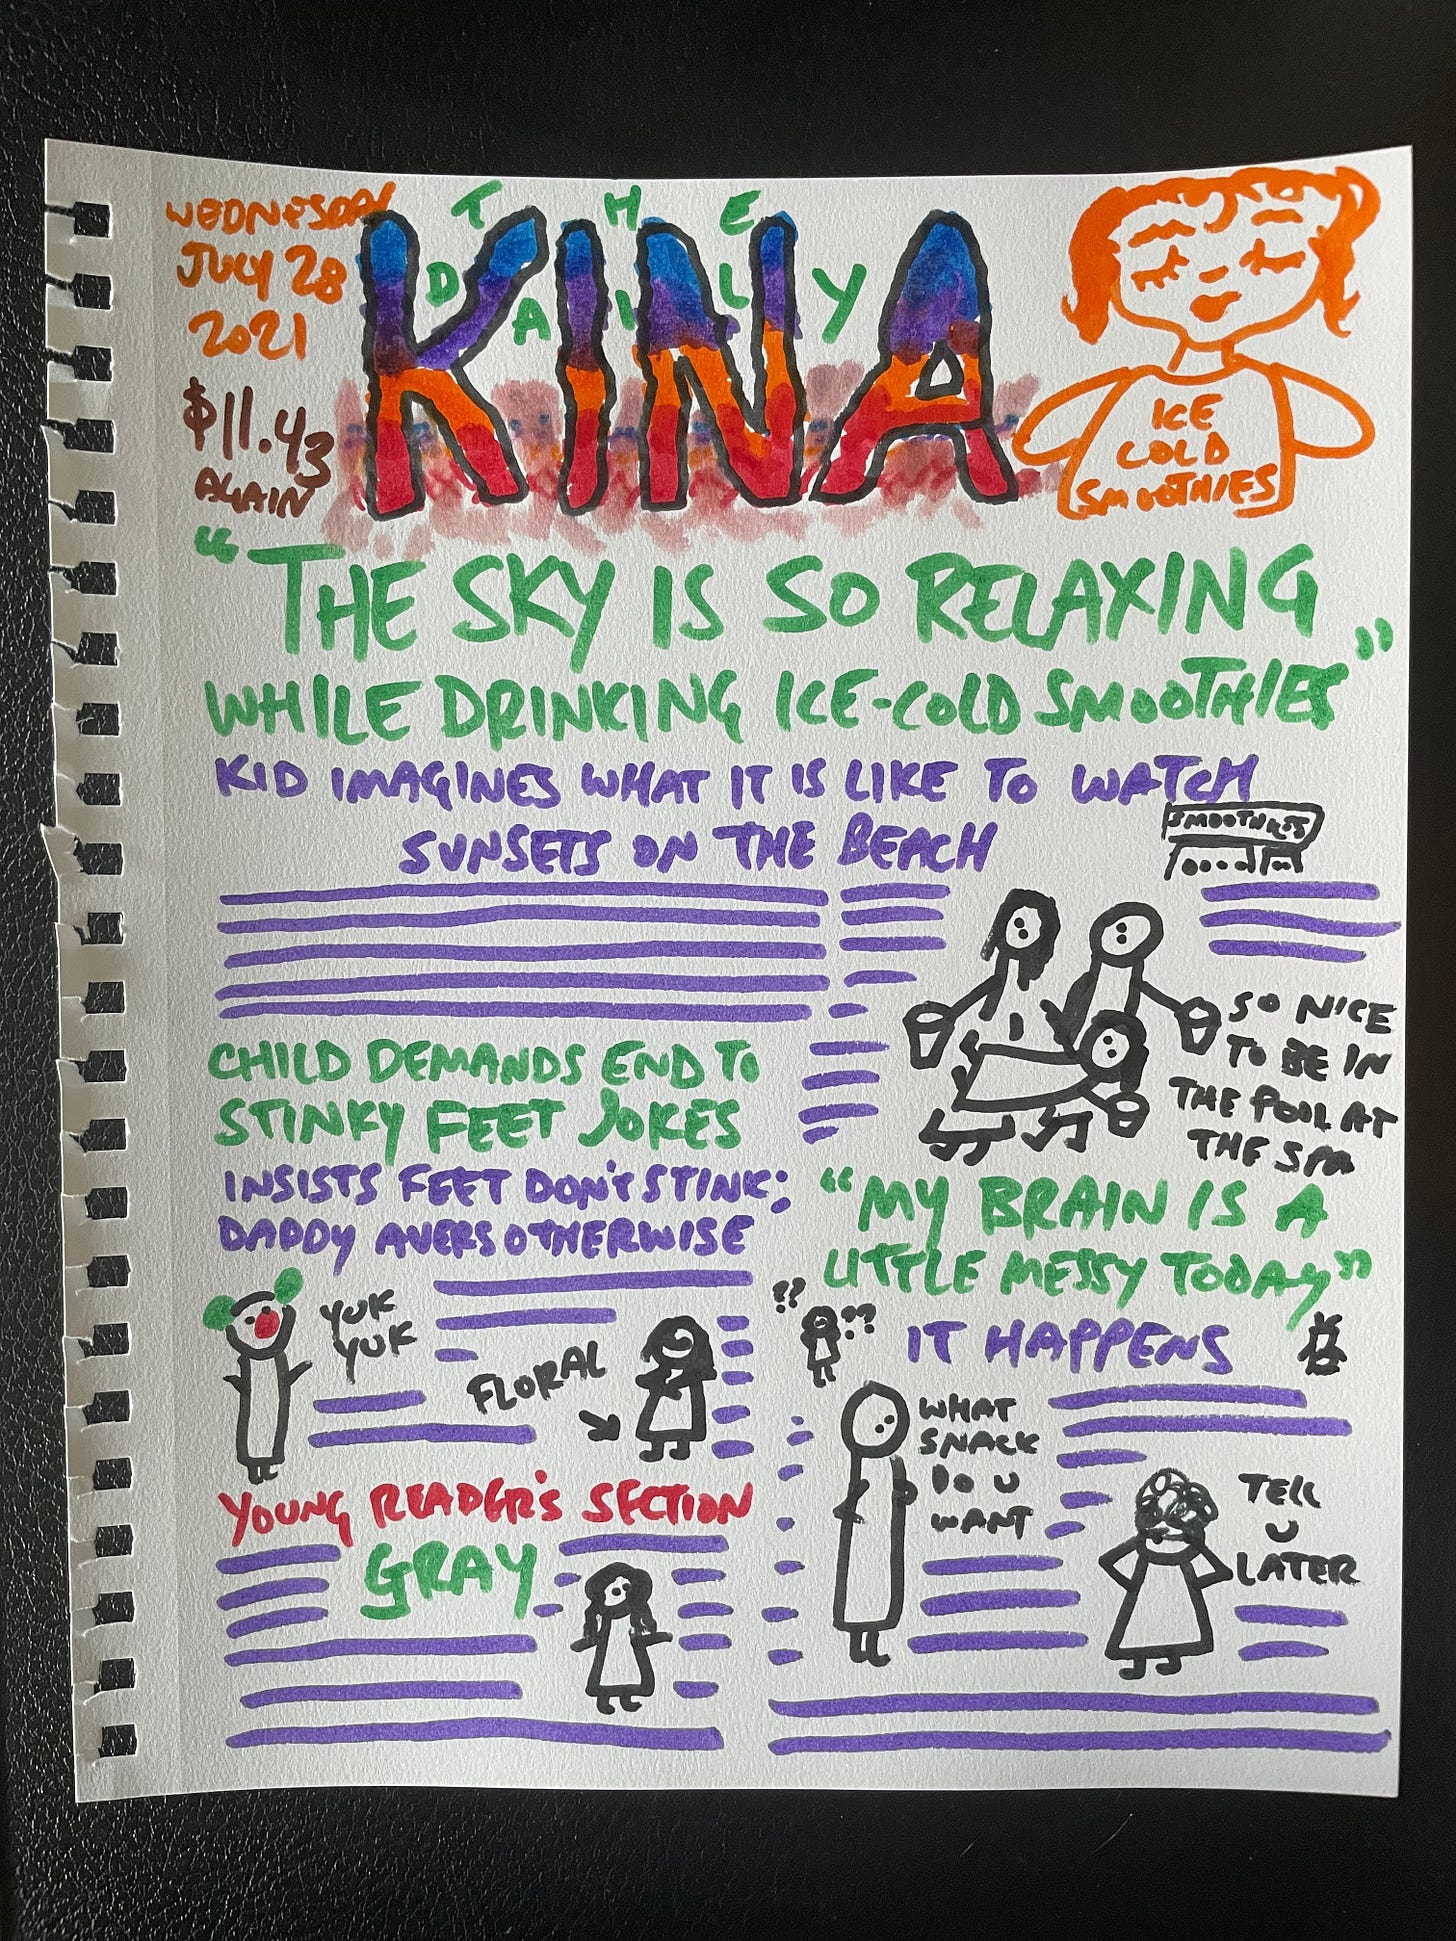 WEDNESDAY
JULY 28
2021
$11.43
AGAIN
THE
DAILY
KINA
ICE
COLD
SMOOTHIES
"THE SKY IS SO RELAXING
WHILE DRINKING ICE-COLD SMOOTHIES"
KID IMAGINES WHAT IT IS LIKE TO WATCH
SUNSETS ON THE BEACH
SMOOTHIES
SO NICE
TO BE IN
THE POOL AT
THE SPA
CHILD DEMANDS END TO
STINKY FEET JOKES
INSISTS FEET DON'T STINK;
DADDY AVERS OTHERWISE
YUK
YUK
FLORAL
"MY BRAIN IS A
LITTLE MESSY TODAY"
?? ??
IT HAPPENS
WHAT
SNACK
DO U
WANT
TELL
U
LATER
YOUNG READER'S SECTION
GRAY